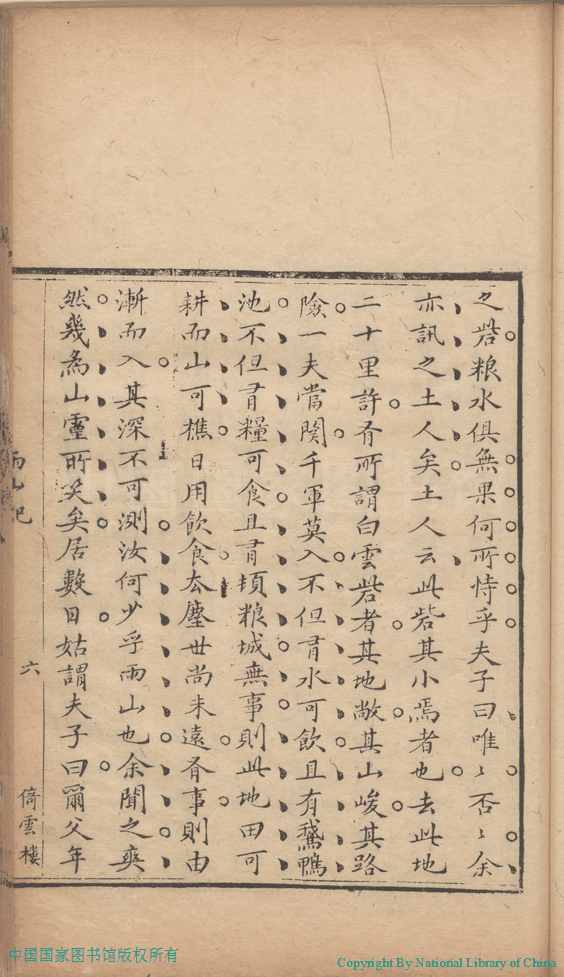 之砦粮水俱無果何所恃乎夫子曰唯〻否〻余
亦訊之土人矣土人云此砦其小焉者也去此地
二十里許有所謂白雲砦者其地敞其山峻其路
險一夫當関千軍莫入不但有水可飲且有鵞鴨
池不但有糧可食且有頓粮城無事則此地田可
耕而山可樵日用飲食去塵世尚未遠有事則由
漸而入其深不可測汝何少乎雨山也余聞之爽
然幾為山靈所笑矣居數日姑謂夫子曰爾父年
雨山记
六
倚雲樓
中国国家图书馆版权所有
Copyright By National Library of China